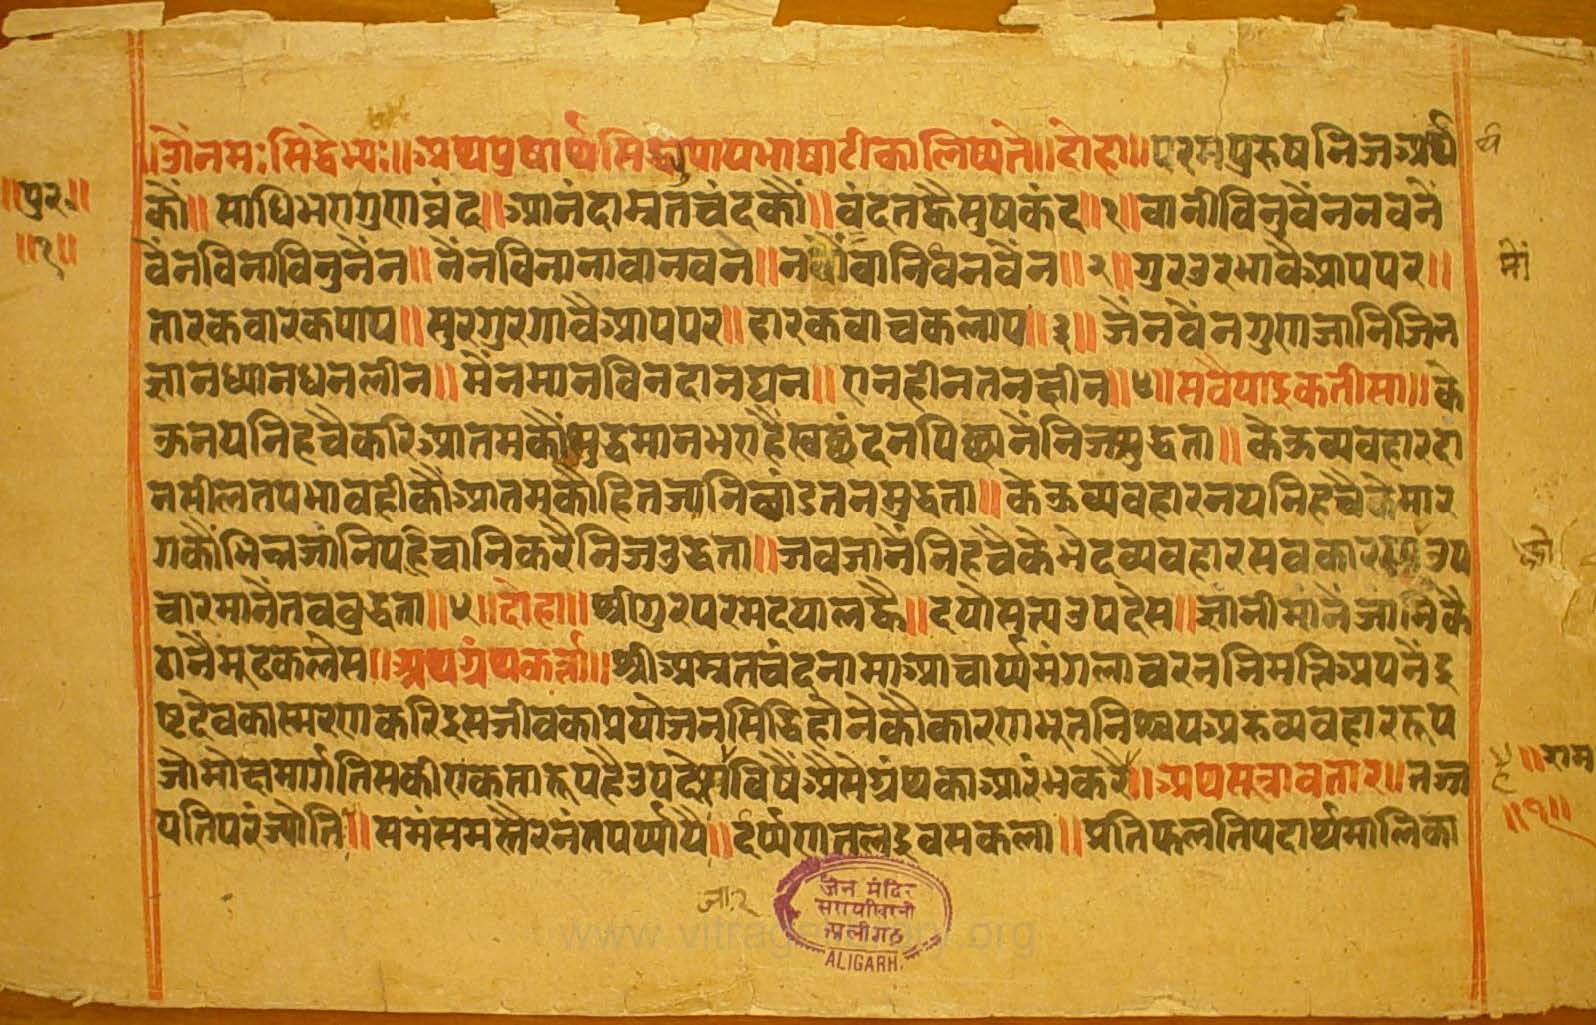 ॥पु॰र॰॥
॥१॥
॥ओंनमःसिद्धेभ्यः॥अथपुरुषार्थसिद्ध्युपायभाषाटीकालिष्यते॥दोहा॥परमपुरुषनिजअर्थ
कौं॥साधिभएगुणव्रंद॥आनंदाम्रतचंदकौं॥वंदतह्वैसुषकंद॥१॥वानीविनुवैंननवनैं
वैंनविनाविनुनैंन॥नैंनविनानावानवनै॥नवौंवानिवनवैंन॥२॥गुरउरभावैआपपर॥
तारकवारकपाप॥सुरगुरगावैआपपर॥हारकवाचकलाप॥३॥जैंनवैंनगुणजानिजिन
ज्ञानध्यानधनलीन॥मैंनमानविनदानघन॥एनहीनतनछीन॥४॥सवैयाइकतीसा॥के
ऊनयनिहचैकरिआतमकौंसुद्धमानभएहैंस्वछंदनपिछानैंनिजसुद्धता॥केऊव्यवहारदा
नसीलतपभावहीकौंआतमकौहितजानिछांडतनमुद्धता॥केऊव्यवहारनयनिहचैकेमार
गकौंभिन्नजांनिपहिचानिकरैनिजउद्धता॥जवजानैंनिहचैकेभेदव्यवहारसवकारणउप
चारमानैंतववुद्धता॥५॥दोहा॥श्रीगुरपरमदयालह्वै॥दयोसत्यउपदेस॥ज्ञानीमांनैंजांनिकै
ठानैमूढकलेस॥अथग्रंथकर्त्ता॥श्रीअम्रतचंदनामाआचार्य्यमंगलाचरननिमत्तिअपनैंइ
ष्टदेवकास्मरणकरिइसजीवकाप्रयोजनसिद्धिहोनेकौकारणभूतनिश्चयअरुव्यवहाररूप
जोमोक्षमार्गतिसकीएकतारूपहैउपदेसविषैंअैसेग्रंथकाआरंभकरै॥अथसूत्रावतार॥तज्ज
यतिपरंज्योतिः॥समंसमस्तैरनंतपर्य्यायैः॥दर्प्पणतलइवसकला॥प्रतिफलतिपदार्थमालिका
॥राम
॥१॥
जैन मंदिर
अलीगढ़
ALIGARH.
www.vitragelibrary.org